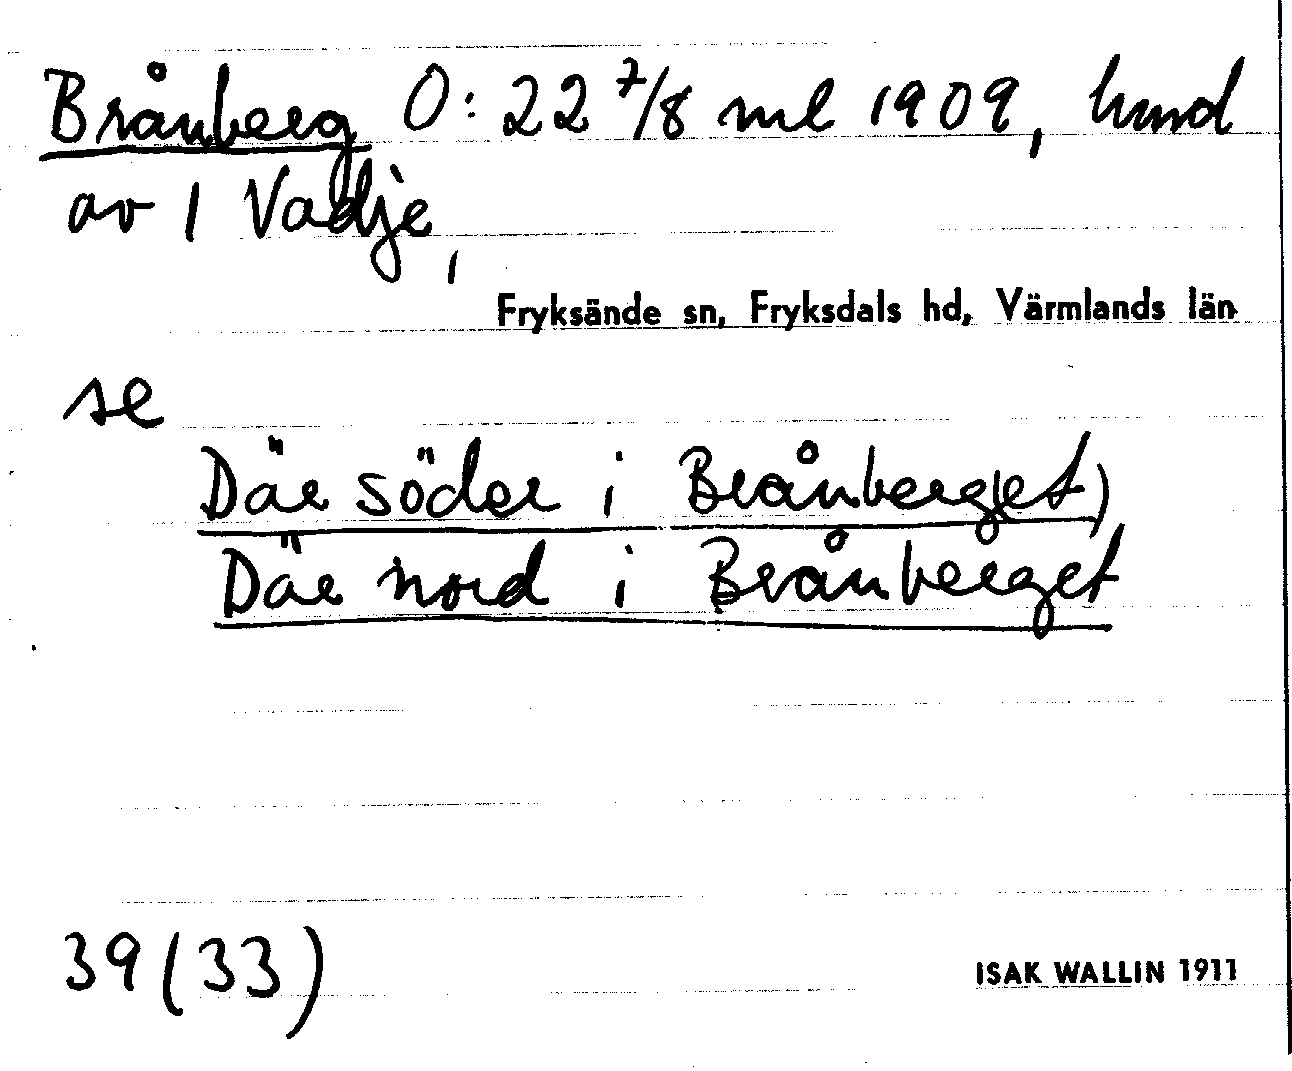 Brånberg O: 22 7/8 ml 1909, hmd
av 1 Vadje,
Fryksände sn, Fryksdals hd, Värmlands län
se
Där söder i Brånberg(et)
Där nord i Brånberget
39 (33)
ISAK WALLIN 1911